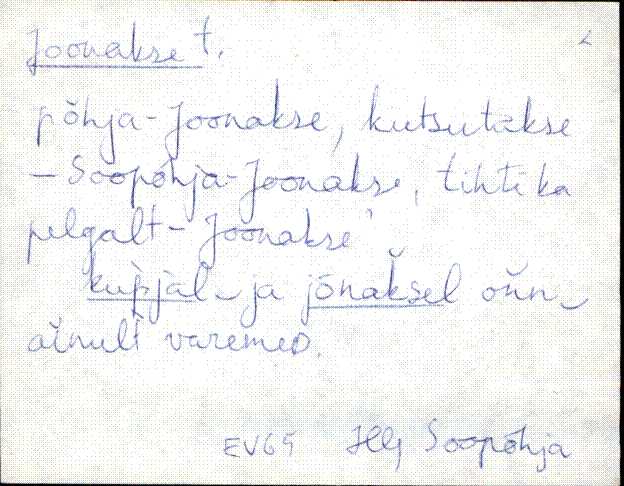 Joonakse t.
põhja-Joonakse, kutsutakse
- Soopõhja-Joonakse, tihti ka
pelgalt - Joonakse
kup̀jal ja jõnakšel oñn
ainult varemed.
EV69 Hlj Soopõhja